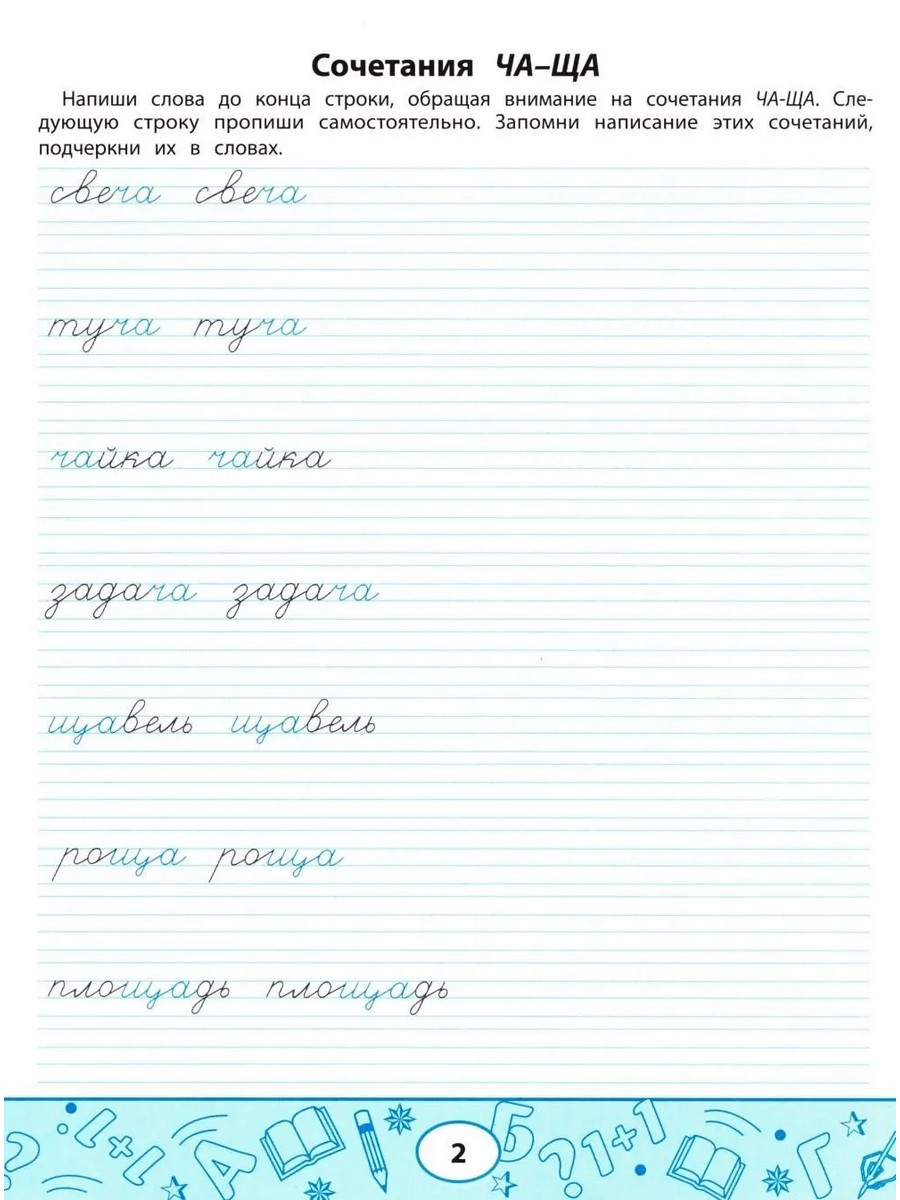 Сочетания ЧА–ЩА
Напиши слова до конца строки, обращая внимание на сочетания ЧА-ЩА. Сле-
дующую строку пропиши самостоятельно. Запомни написание этих сочетаний,
подчеркни их в словах.
свеча свеча
туча туча
чайка чайка
задача задача
щавель щавель
роща роща
площадь площадь
1+1 А Б ?1+1 Г
2